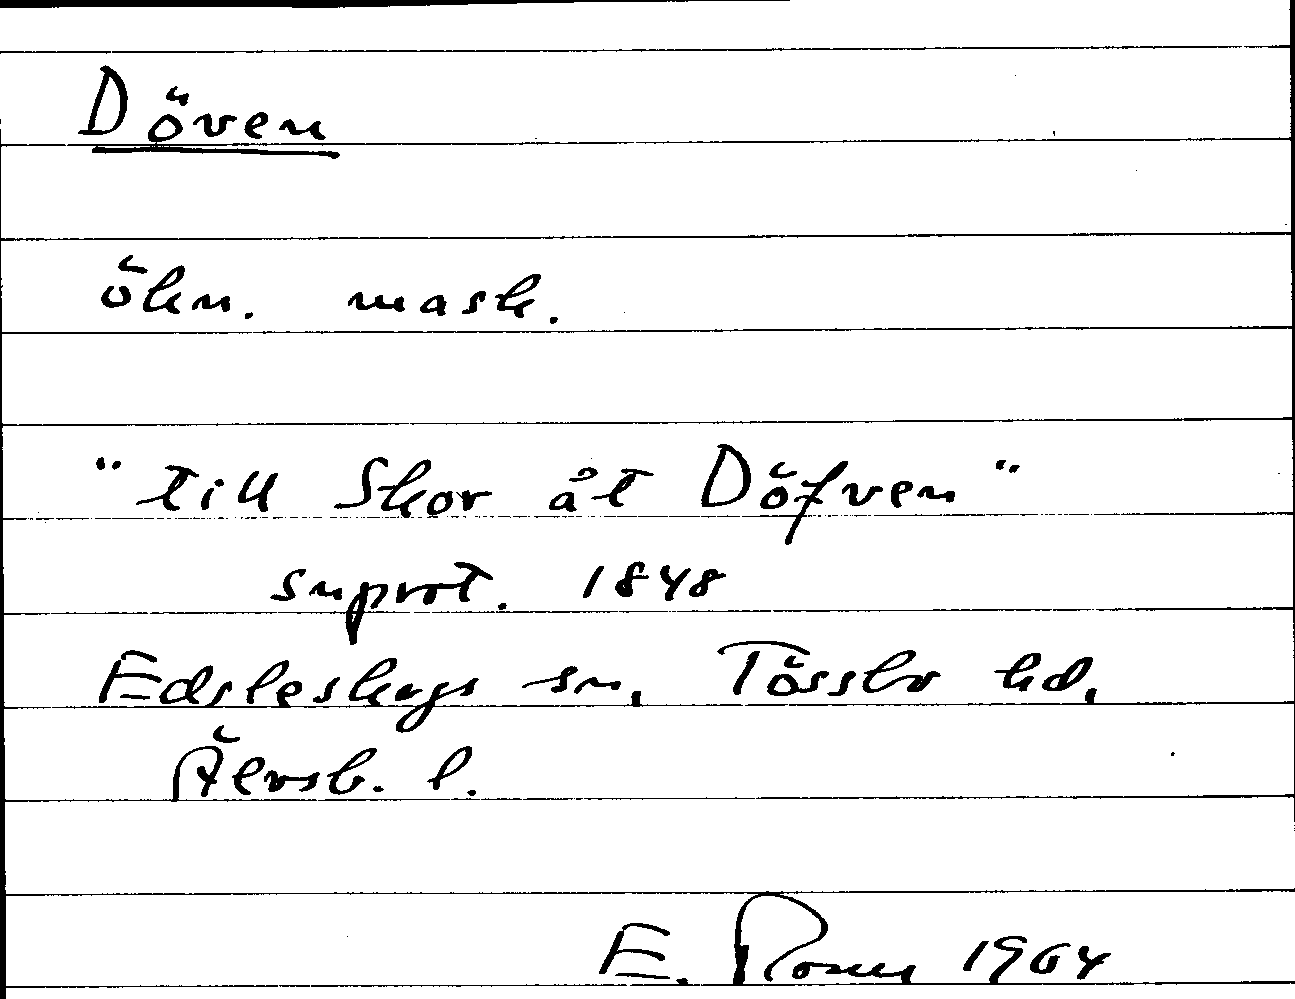 Döven
ökn. mask.
"till Skor åt Döfven"
snprot. 1848
Edsleskogs sn, Tössbo hd,
Älvsb. l.
E. 1964